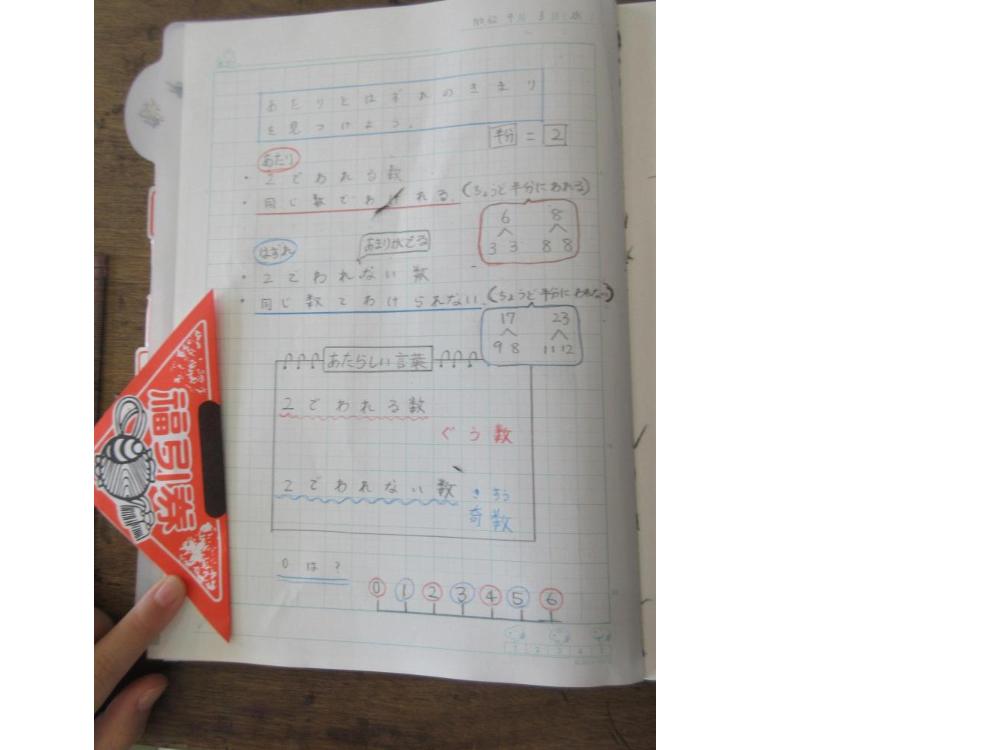 No.62 9月 3日(水)
あたりとはずれのきまり
を見つけよう。
半分 = 2
あたり
・2でわれる数
・同じ数でわけれる。(ちょうど半分にわれる)
6 8
3 3 8 8
はずれ
あまりがでる
・2でわれない数
・同じ数でわけられない。(ちょうど半分にわれない)
17 23
9 8 11 12
あたらしい言葉
2でわれる数
ぐう数
2でわれない数
きすう
奇数
0は?
0 1 2 3 4 5 6
福引券